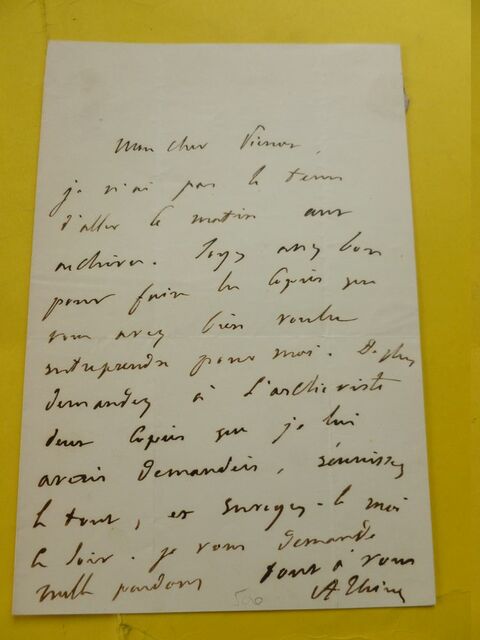 Mon cher
je n'ai pas le tems
d'aller ce matin aux
archives. Soyez assez bon
pour faire les copies que
vous avez bien voulu
entreprendre pour moi. De plus
demandez à l'archiviste
deux copies que je lui
avais demandées, réunissez
le tout, et envoyez-le moi
ce soir. je vous demande
mille pardons tout à vous
A Thiers
500